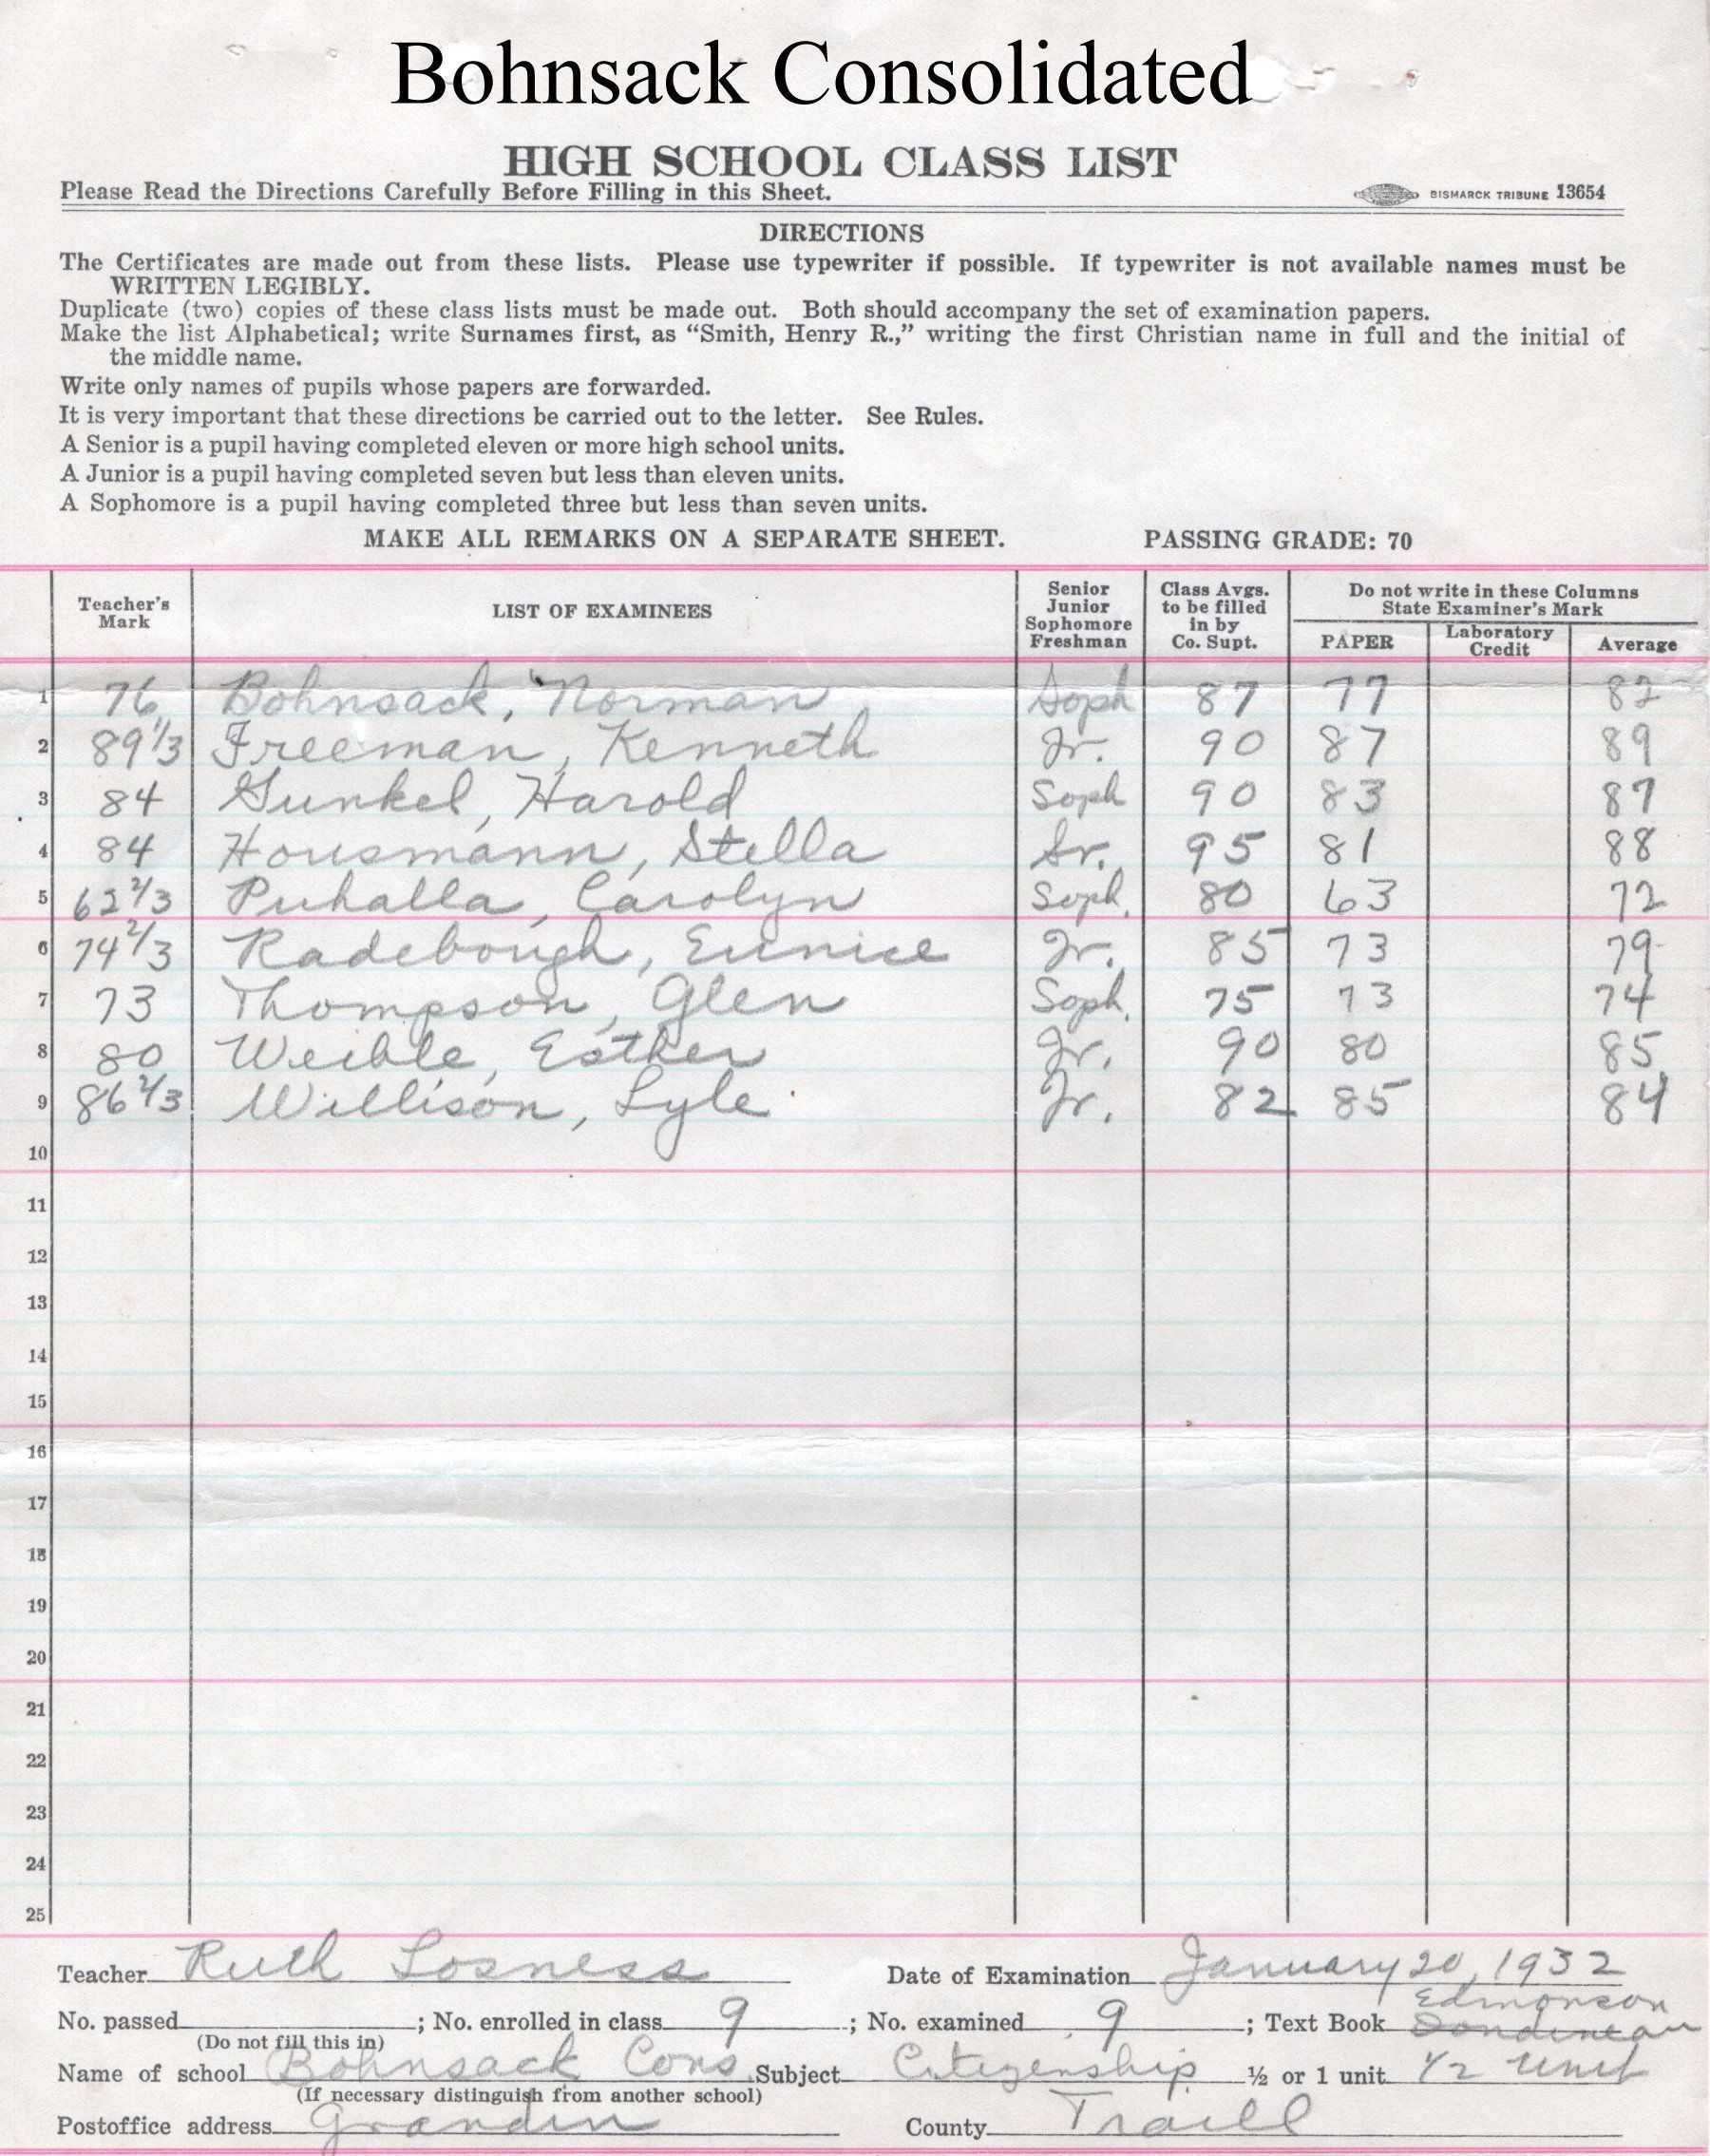 Bohnsack Consolidated
HIGH SCHOOL CLASS LIST
Please Read the Directions Carefully Before Filling in this Sheet. BISMARCK TRIBUNE 13654
DIRECTIONS
The Certificates are made out from these lists. Please use typewriter if possible. If typewriter is not available names must be
WRITTEN LEGIBLY.
Duplicate (two) copies of these class lists must be made out. Both should accompany the set of examination papers.
Make the list Alphabetical; write Surnames first, as “Smith, Henry R.,” writing the first Christian name in full and the initial of
the middle name.
Write only names of pupils whose papers are forwarded.
It is very important that these directions be carried out to the letter. See Rules.
A Senior is a pupil having completed eleven or more high school units.
A Junior is a pupil having completed seven but less than eleven units.
A Sophomore is a pupil having completed three but less than seven units.
MAKE ALL REMARKS ON A SEPARATE SHEET. PASSING GRADE: 70
Teacher's Mark LIST OF EXAMINEES Senior Junior Sophomore Freshman Class Avgs. to be filled in by Co. Supt. Do not write in these Columns State Examiner's Mark PAPER Laboratory Credit Average
1 76 Bohnsack, Norman Soph 87 77 82
2 89 1/3 Freeman, Kenneth Jr. 90 87 89
3 84 Gunkel, Harold Soph 90 83 87
4 84 Housmann, Stella Sr. 95 81 88
5 62 2/3 Puhalla, Carolyn Soph. 80 63 72
6 74 2/3 Radebough, Eunice Jr. 85 73 79
7 73 Thompson, Glen Soph. 75 73 74
8 80 Weible, Esther Jr. 90 80 85
9 86 2/3 Willison, Lyle Jr. 82 85 84
10
11
12
13
14
15
16
17
18
19
20
21
22
23
24
25
Teacher Ruth Losness Date of Examination January 20, 1932
Edmonson
No. passed ; No. enrolled in class 9 ; No. examined 9 ; Text Book
(Do not fill this in)
Name of school Bohnsack Cons. Subject Citizenship ½ or 1 unit 1/2 unit
(If necessary distinguish from another school)
Postoffice address Grandin County Traill